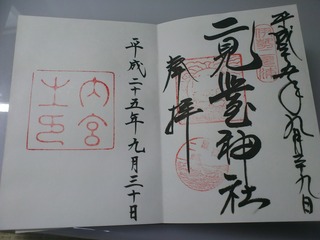 平成二十五年九月二十九日
二見興玉神社
奉拝
平成二十五年九月三十日
内宮
之印